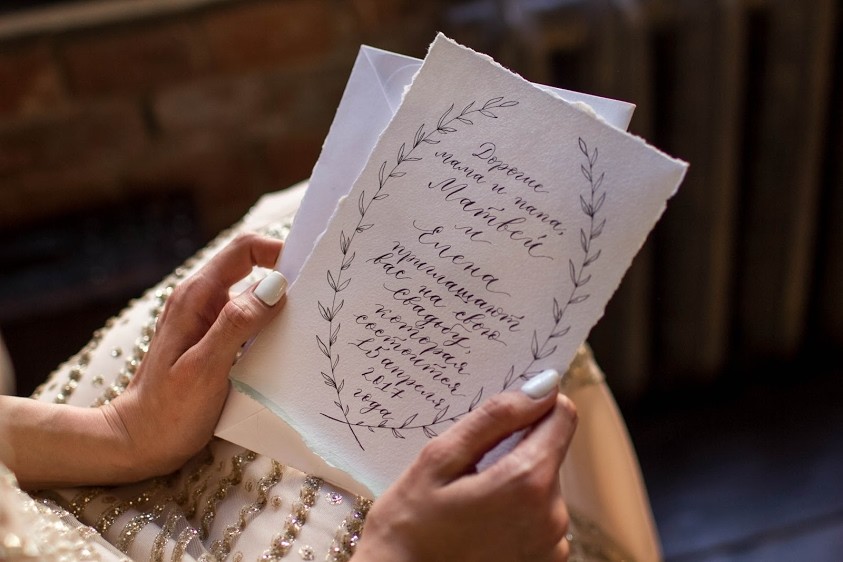 Дорогие
мама и папа,
Матвей
и
Елена
приглашают
вас на свою
свадьбу,
которая
состоится
15 апреля
2017
года